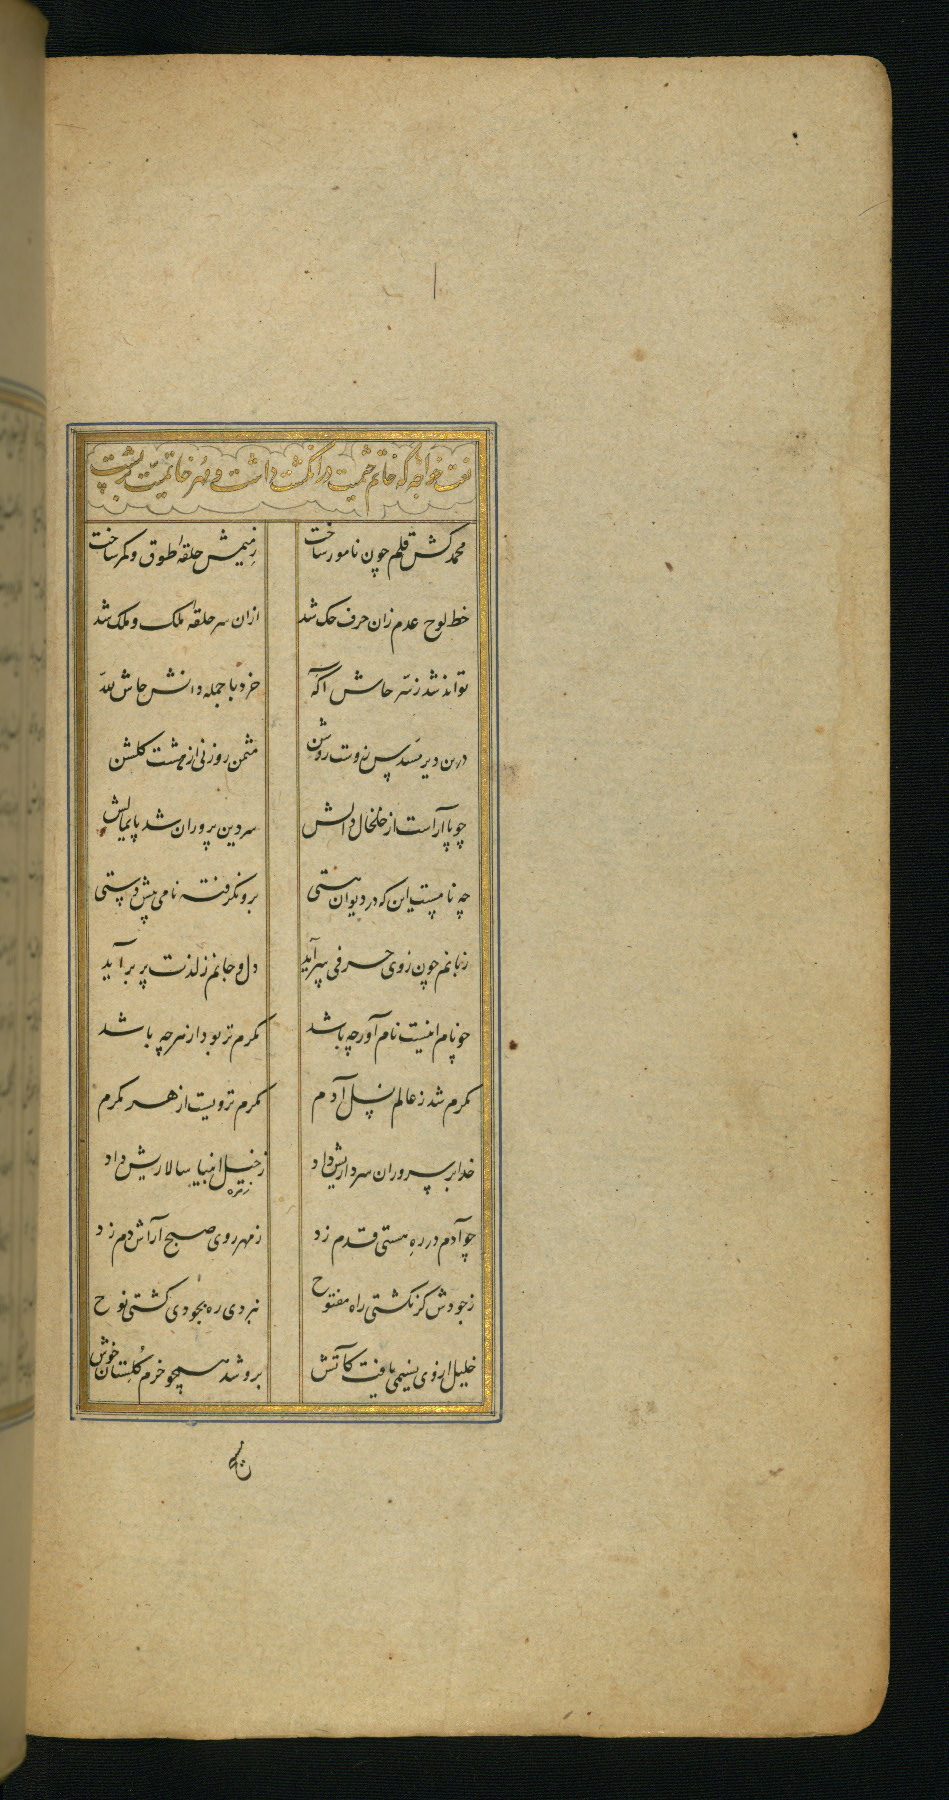 نعت خواجه که خاتم ختمیت در انگشت داشت و مهر خاتمیت بر پشت
محمدکش قلم چون نامور ساخت ز میمش حلقه طوق و کمر ساخت
خط لوح عدم زان حرف حک شد ازان سر حلقه ملک و ملک شد
تواند شد ز سر حاش آگه خرد با جمله دانش حاش لله
درین دیر مسدس ز وست روشن مثمن روزنی از هشت گلشن
چو پا آراست از خلخال دالش سر دین پروران شد پایمالش
چه نامیست این که در دیوان هستی برو نگرفته نامی پیش دستی
زبانم چون ز وی حرفی سراید دل و جانم ز لذت پر برآید
چو نام اینست نام آور چه باشد مکرم تر بود از هر چه باشد
مکرم شد ز عالم نسل آدم مکرم تر ویست از هر مکرم
خدا بر سروران سرداریش داد ز خیل انبیا سالاریش داد
چو آدم در ره هستی قدم زد ز مهر روی صبح آراش دم زد
ز جودش گر نگشتی راه مفتوح نبردی ره بجودی کشتی نوح
خلیل از وی نسیمی یافت کآتش برو شد همچو خرم گلستان خوش